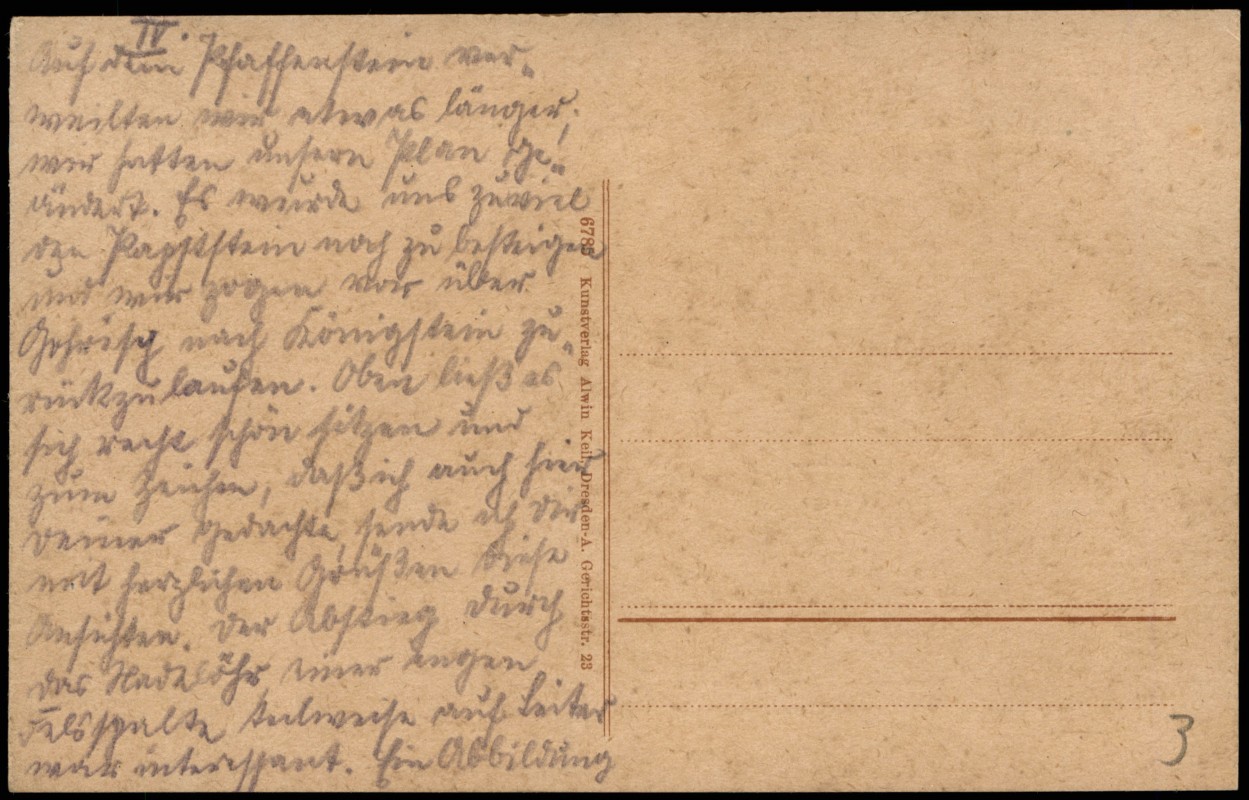 IV.
Auf dem Pfaffenstein ver-
weilten wir etwas länger,
wir hatten unsern Plan ge-
ändert. Es wurde uns zuviel
den Papststein noch zu besteigen
und wir zogen vor über
Gohrisch nach Königstein zu-
rückzulaufen. Oben ließ es
sich recht schön sitzen und
zum Zeichen, daß ich auch hier
Deiner gedachte, sende ich Dir
mit herzlichen Grüßen diese
Ansichten. Der Abstieg durch
das Nadelöhr, einer engen
Felsspalte teilweise auf Leiter
war interessant. Ein Abbildung
6785 Kunstverlag Alwin Keil, Dresden-A. Gerichtsstr. 23
3